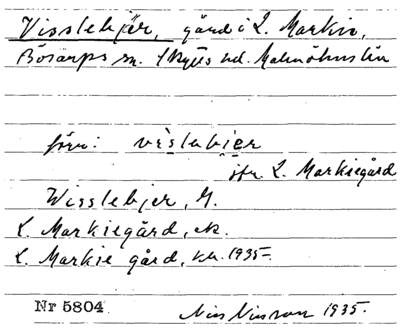 Visslebjär, gård i L. Markie,
Bösarps sn. Skytts hd. Malmöhus län
förr: vıslabjer
jfr L. Markiegård
Wisslebjer, G.
L. Markiegård, ek.
L. Markie gård, ka. 1935.
Nr 5804. Nils Nilsson 1935.